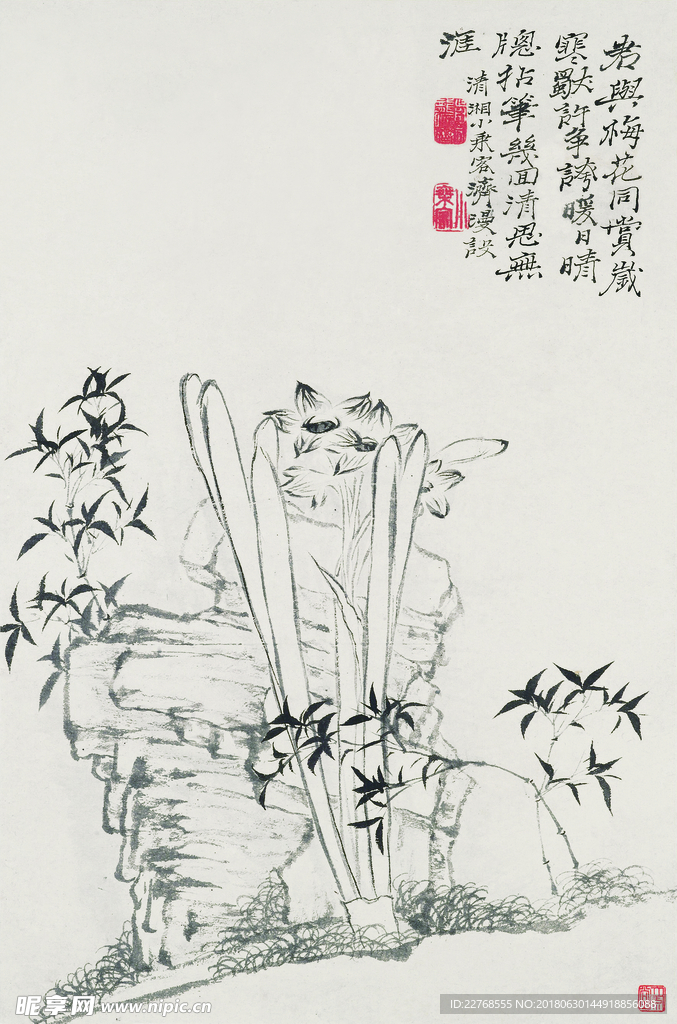 君與梅花同賞歲
寒獸許争誇暖日晴
牕拈筆幾回清思無
涯
清湘小乘客濟漫設
小乘客
昵享网 www.nipic.cn
ID:22768555 NO:20180630144918856088